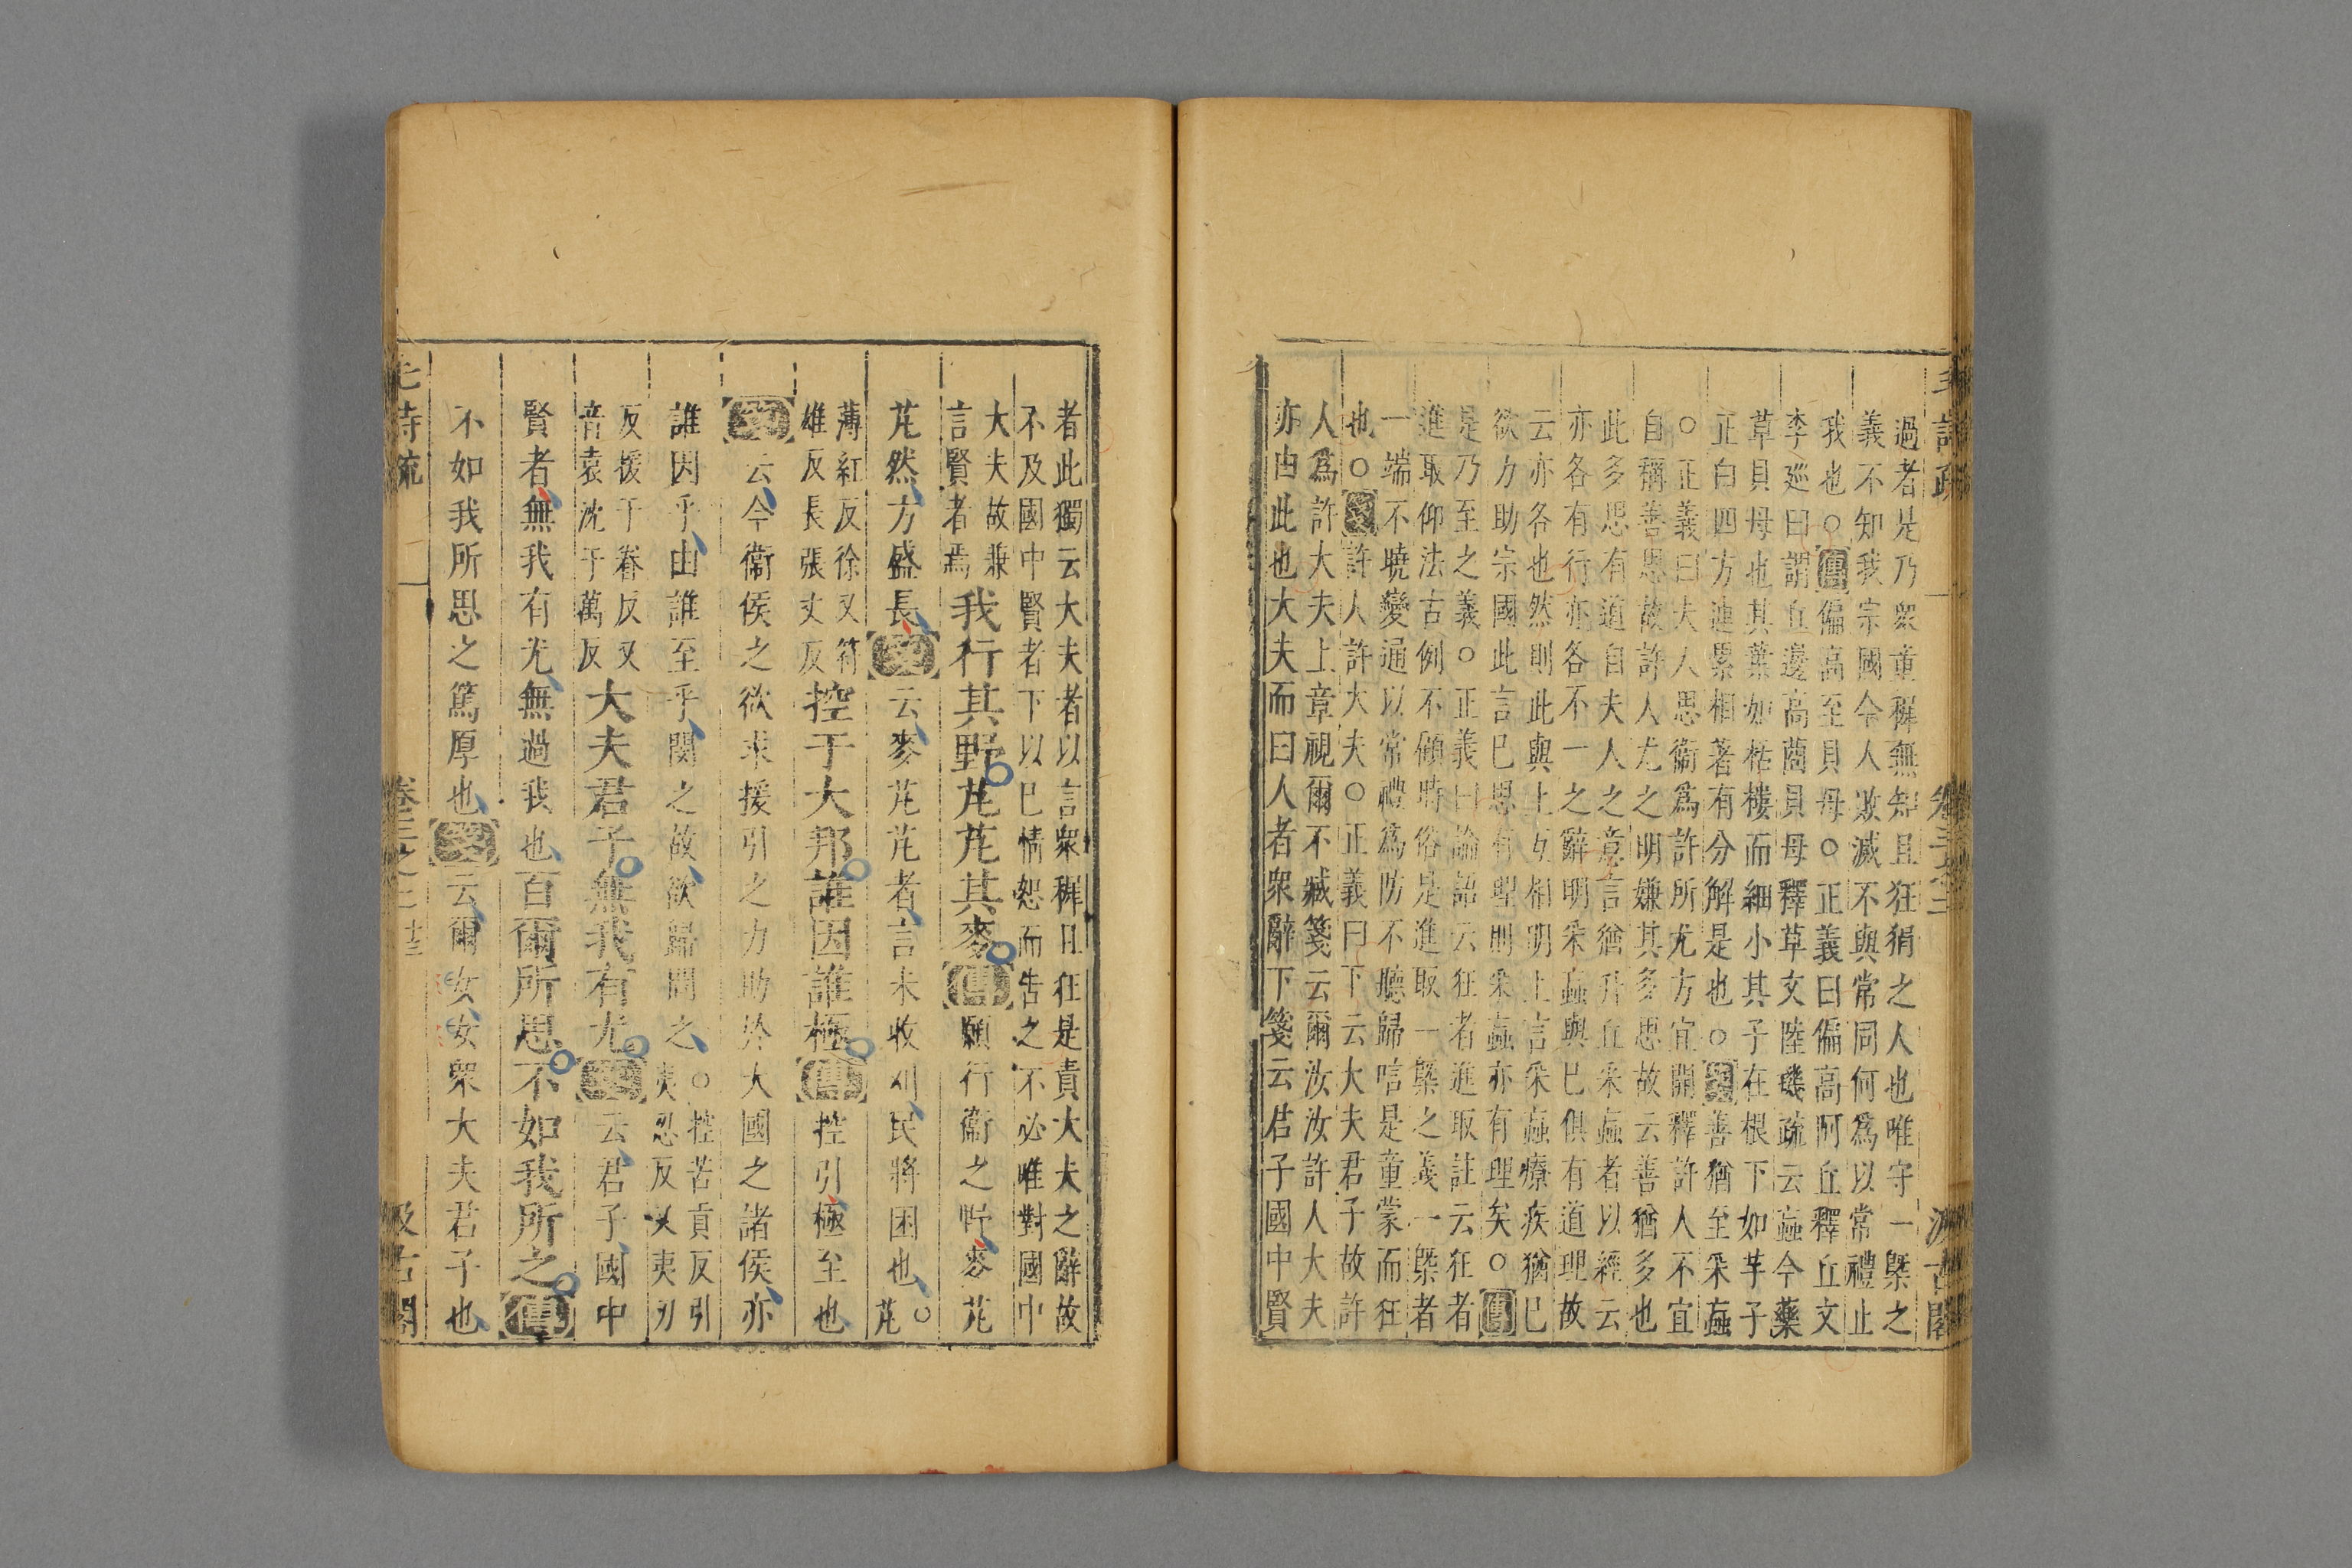 毛詩疏 卷三之二 汲古閣
過者是乃衆童穉無知且狂狷之人也唯守一槩之
義不知我宗國今人敗滅不與常同何爲以常禮止
我也○傳偏高至貝母○正義曰偏高阿丘釋丘文
李巡曰謂丘邊高蝱貝母釋草文陸璣疏云蝱今藥
草貝母也其葉如栝樓而細小其子在根下如芋子
正白四方連累相著有分解是也○箋善猶至采蝱
○正義曰夫人思衞爲許所尤方宜開釋許人不宜
自稱善思故許人尤之明嫌其多思故云善猶多也
此多思有道自夫人之意言猶升丘采蝱者以經云
亦各有行亦各不一之辭明采蝱與已俱有道理故
云亦各也然則此與上互相明上言采蝱療疾猶已
欲力助宗國此言已思有理則采蝱亦有理矣○傳
是乃至之義○正義曰論語云狂者進取註云狂者
進取仰法古例不顧時俗是進取一槩之義一槩者
一端不曉變通以常禮爲防不聽歸唁是童蒙而狂
也○箋許人許大夫○正義曰下云大夫君子故許
人爲許大夫上章視爾不臧箋云爾汝汝許人大夫
亦由此也大夫而曰人者衆辭下箋云君子國中賢
者此獨云大夫者以言衆穉且狂是責大夫之辭故
不及國中賢者下以巳情恕而告之不必唯對國中
大夫故兼
言賢者焉我行其野芃芃其麥傳願行衞之野麥芃
芃然方盛長箋云麥芃芃者言未收刈民將困也○芃
薄紅反徐又符
雄反長張丈反控于大邦誰因誰極傳控引極至也
箋云今衞侯之欲求援引之力助於大國之諸侯亦
誰因乎由誰至乎閔之故欲歸問之○控苦貢反引
夷忍反又夷刃
反援于眷反又
音袁沈于萬反大夫君子無我有尤箋云君子國中
賢者無我有尤無過我也百爾所思不如我所之傳
不如我所思之篤厚也箋云爾女女衆大夫君子也
毛詩疏 卷三之二 十三 汲古閣